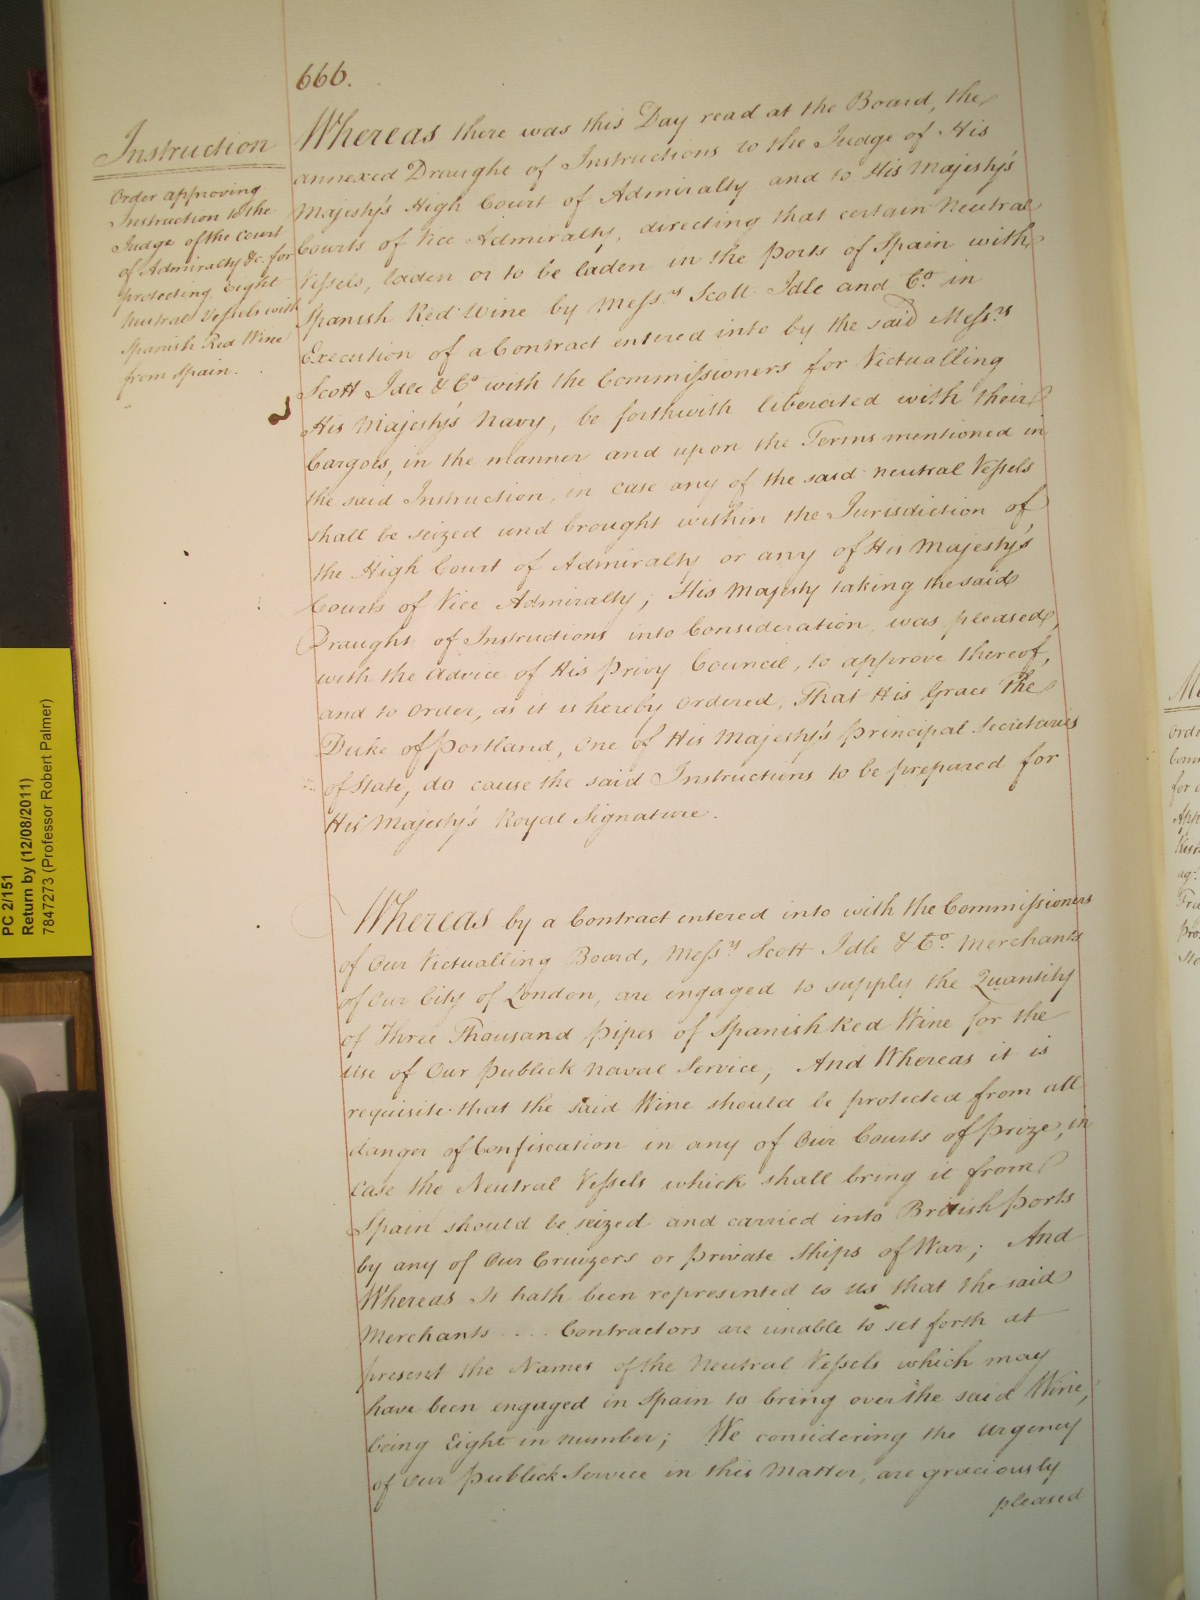 666.
Instruction
Order approving
Instruction to the
Judge of the Court
of Admiralty &c. for
protecting eight
Neutral Vessels with
Spanish Red Wine
from Spain.
Whereas there was this Day read at the Board, the
annexed Draught of Instructions to the Judge of His
Majesty's High Court of Admiralty and to His Majesty's
Courts of Vice Admiralty, directing that certain Neutral
Vessels, laden or to be laden in the Ports of Spain with
Spanish Red Wine by Mess.rs Scott Idle and Co. in
Execution of a Contract entered into by the said Mess.rs
Scott Idle & Co with the Commissioners for Victualling
His Majesty's Navy, be forthwith liberated with their
Cargoes, in the manner and upon the Terms mentioned in
the said Instruction, in case any of the said neutral Vessels
shall be seized and brought within the Jurisdiction of
the High Court of Admiralty or any of His Majesty's
Courts of Vice Admiralty; His Majesty taking the said
Draught of Instructions into Consideration, was pleased,
with the Advice of His Privy Council, to approve thereof,
and to Order, as it is hereby Ordered, That His Grace the
Duke of Portland, One of His Majesty's Principal Secretaries
of State, do cause the said Instructions to be prepared for
His Majesty's Royal Signature.
Whereas by a Contract entered into with the Commissioners
of Our Victualling Board, Mess.rs Scott Idle & Co. Merchants
of Our City of London, are engaged to supply the Quantity
of Three Thousand Pipes of Spanish Red Wine for the
use of Our Publick Naval Service; And Whereas it is
requisite that the said Wine should be protected from all
danger of Confiscation in any of Our Courts of Prize, in
Case the Neutral Vessels which shall bring it from
Spain should be seized and carried into British Ports
by any of Our Cruizers or Private Ships of War; And
Whereas It hath been represented to us that the said
Merchants .... Contractors are unable to set forth at
present the Names of the Neutral Vessels which may
have been engaged in Spain to bring over the said Wine,
being Eight in number; We considering the urgency
of Our Publick Service in this Matter, are graciously
pleased
PC 2/151
Return by (12/08/2011)
7847273 (Professor Robert Palmer)